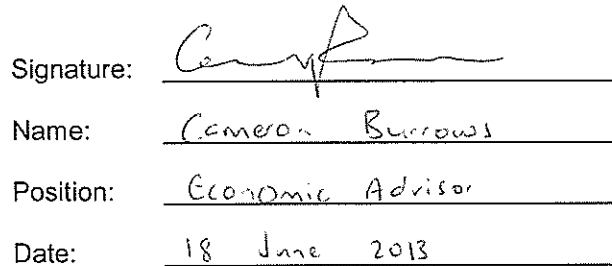 Signature:
Name: Cameron Burrows
Position: Economic Advisor
Date: 18 June 2013